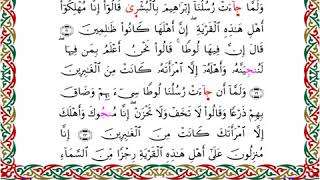 وَلَمَّا جَآءَتْ رُسُلُنَآ إِبْرَٰهِيمَ بِٱلْبُشْرَىٰ قَالُوٓا۟ إِنَّا مُهْلِكُوٓا۟
أَهْلِ هَٰذِهِ ٱلْقَرْيَةِ ۖ إِنَّ أَهْلَهَا كَانُوا۟ ظَٰلِمِينَ
قَالَ إِنَّ فِيهَا لُوطًا ۚ قَالُوا۟ نَحْنُ أَعْلَمُ بِمَن فِيهَا ۖ
لَنُنَجِّيَنَّهُۥ وَأَهْلَهُۥٓ إِلَّا ٱمْرَأَتَهُۥ كَانَتْ مِنَ ٱلْغَٰبِرِينَ
وَلَمَّآ أَن جَآءَتْ رُسُلُنَا لُوطًا سِىٓءَ بِهِمْ وَضَاقَ
بِهِمْ ذَرْعًا وَقَالُوا۟ لَا تَخَفْ وَلَا تَحْزَنْ ۖ إِنَّا مُنَجُّوكَ وَأَهْلَكَ
إِلَّا ٱمْرَأَتَكَ كَانَتْ مِنَ ٱلْغَٰبِرِينَ
إِنَّا مُنزِلُونَ عَلَىٰٓ أَهْلِ هَٰذِهِ ٱلْقَرْيَةِ رِجْزًا مِّنَ ٱلسَّمَآءِ